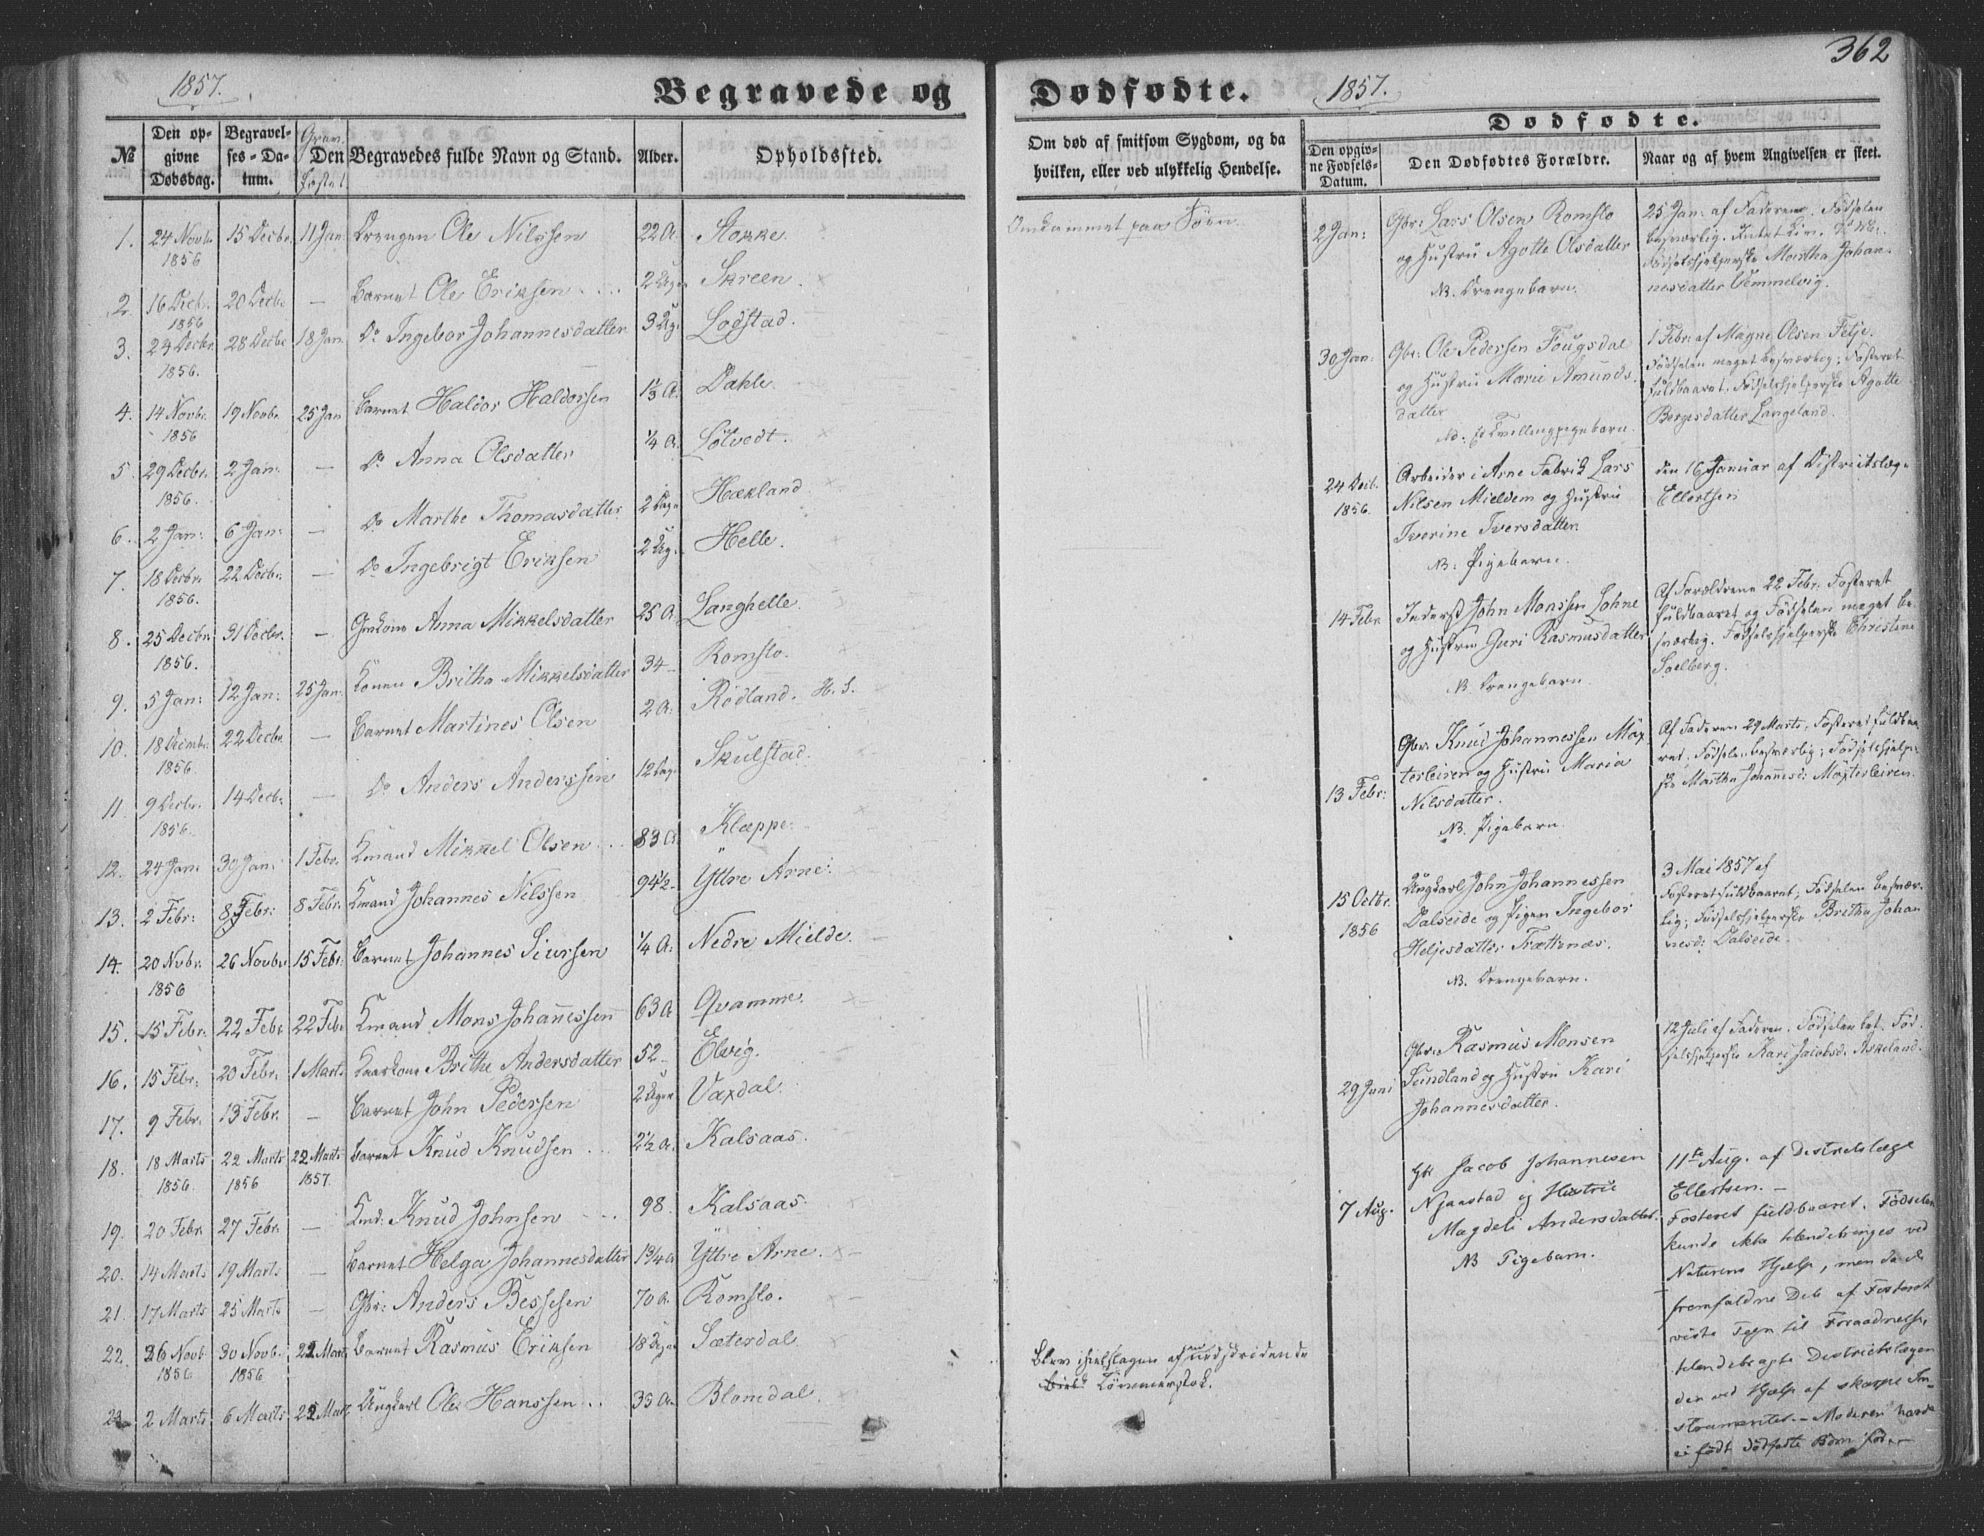 362
1857.
Begravede og Dødfødte.
1857.
№
Den opgivne Dødsdag.
Begravelses-Datum.
Den
Begravedes fulde Navn og Stand.
Alder.
Opholdssted.
Om død af smitsom Sygdom, og da hvilken, eller ved ulykkelig Hendelse.
Dødfødte.
Den opgivne Fødsels-Datum.
Den Dødfødtes Forældre.
Naar og af hvem Angivelsen er skeet.
1. 24 Novbr. 1856 15 Decbr. 11 Jan Drengen Ole Nilssen 22 A. Stokke. Omkommet paa Søen
2. 16 Decbr. 1856 20 Decbr. — Barnet Ole Eriksen 2 Uger Skreen.
3. 23 Decbr. 1856. 28 Decbr 18 Jan. Do Ingebor Johannesdatter 3 Ug. Lodstad.
4. 14 Novbr. 1856 19 Novbr 25 Jan Barnet Haldor Haldorsen 1½ A. Dahle.
5. 29 Decbr. 1856. 2 Jan: — Do Anna Olsdatter ¼ A. Løtvedt.
6. 2 Jan: 6 Jan: — Do Marthe Thomasdatter 2 Dage Hækland
7. 18 Decbr. 1856. 22 Decbr. — Do Ingebrigt Eriksen 2 Ug. Helle.
8. 25 Decbr 1856. 31 Decbr. — Anna Mikkelsdatter 25 A. Langhelle.
9. 5 Jan: 12 Jan: 25 Jan. Konen Britha Mikkelsdatter 34 — Romslo.
10. 18 Decmbr. 1856 22 Decbr — Barnet Martines Olsen 2 A. Rødland. H. S.
11. 9 Decbr. 1856. 14 Decbr — Do Anders Anderssen 12 Dage Skulstad.
12. 24 Jan: 30 Jan: 1 Febr. Kmand Mikkel Olsen 83 A. Klæppe.
13. 2 Febr: 8 Febr: 8 Febr. Kmand Johannes Nilssen 94½ - Yttre Arne.
14. 20 Nvbr. 1856 26 Novbr 15 Febr. Barnet Johannes Siursen ¼ A. Nedre Mielde.
15. 15 Febr: 22 Febr 22 Febr Kmand Mons Johannessen 63 A Qvamme.
16. 15 Febr: 20 Febr. 1 Marts Brithe Andersdatter 52 - Elvig.
17. 9 Febr. 13 Febr. — Barnet John Pedersen 2 Uger Vaxdal.
18. 18 Marts 1856. 22 Marts 1856 22 Marts 1857. Barnet Knud Knudsen 2½ A. Kalsaas.
19. 20 Febr. 27 Febr. — Kmd: Knud Johnsen 98. Kalsaas.
20. 14 Marts 19 Marts — Barnet Helga Johannesdatter 1¾ A Yttre Arne.
21. 17 Marts 25 Marts — Gbr: Anders Bessesen 70 A. Romslo.
22. 26 Novb. 1856 30 Novb. 1856 22 Mart. Barnet Rasmus Eriksen 18 Uger Sæterdal
2 Marts 6 Marts 22 Mart Ungkarl Ole Hanssen 33 A. Blomdal
Blev ihielslagen af en nedskridende
Tømmerstok.
2 Jan: Gbr: Lars Olsen Romslo
og Hustru Agotte Olsdatter
NB. Drengebarn.
25 Jan: af Faderen. Fødselen
besværlig.
Fødselshjelperske Martha Johan-
nesdatter Vemmelvig.
30 Jan: Gbr: Ole Pedersen Fougsdal
og Hustru Marie Amunds-
datter
NB: Tvillingpigebarn.
1 Febr: af Magne Olsen Fetje.
Fødselen meget besværlig; Fosteret
fuldbaaret. Fødselshjelperske Agotte
Børgesdatter Langeland.
24 Decb. 1856. Arbeider i Arne Fabrik Lars
Nilsen Mieldem og Hustru
Iverine Iversdatter.
NB: Pigebarn.
den 16 Januar af Districtslæge
Ellertsen
14 Febr Inderst John Monssen Lohne
og Hustru Guri Rasmusdatter
NB. Drengebarn.
Af Forældrene 22 Febr. Fosteret
fuldbaaret og Fødselen meget be-
sværlig. Fødselshjelperske Christine
Soelberg.
13 Febr: Gbr. Knud Johannessen Møx-
terleiren og Hustru Maria
Nilsdatter.
NB. Pigebarn.
Af Faderen 29 Marts. Fosteret fuldbaa-
ret; Fødselen besværlig; Fødselshjelper-
ske Martha Johannesd: Møxterleiren.
15 Octbr. 1856 Ungkarl John Johannessen
Dalseide og Pigen Ingebor
Heljesdatter Trættenæs.
NB. Drengebarn.
3 Mai 1857 af
Fosteret fuldbaaret, Fødselen besvær-
lig; Fødselshjelperske Britha Johan
nesd: Dalseide.
29 Juni Gbr: Rasmus Monsen
Sundland og Hustru Kari
Johannesdatter.
12 Juli af Faderen. Fødselen bes. Fød-
selshjelperske Kari Jacobsd. Askeland.
7 Aug. Gbr Jacob Johannesen
Njaastad og Hustrue
Magdeli Andersdatter.
NB Pigebarn.
11te Aug. af Districtslæge
Ellertsen. —
Fosteret fuldbaaret. Fødselen
kunde ikke tilendebringes ved
Naturens Hjælp, men da de
fremfaldne Dele af Fosteret
viste Tegn til Foraadnelse,
tilendebragte Districtslægen
den ved Hjælp af skarpe In-
strumenter. — Moderen havde
ei født dødfødte Børn før. —